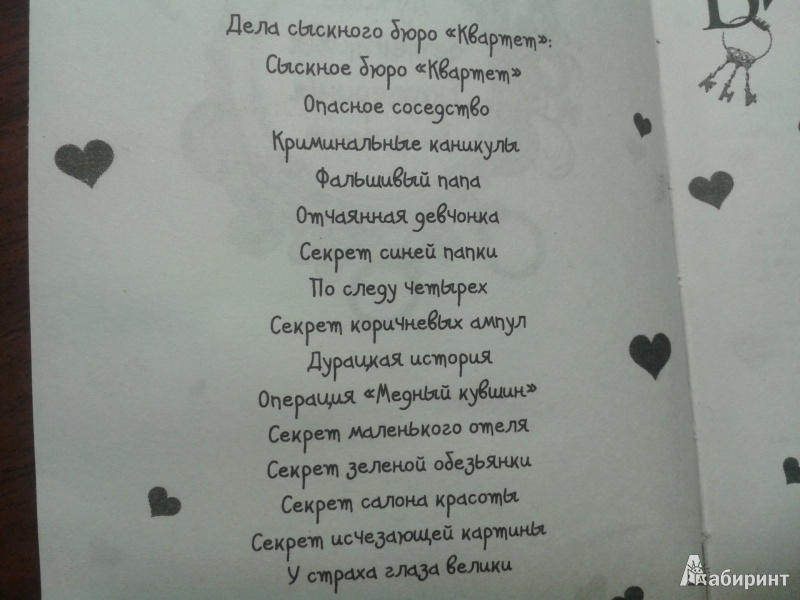 Дела сыскного бюро «Квартет»:
Сыскное бюро «Квартет»
Опасное соседство
Криминальные каникулы
Фальшивый папа
Отчаянная девчонка
Секрет синей папки
По следу четырех
Секрет коричневых ампул
Дурацкая история
Операция «Медный кувшин»
Секрет маленького отеля
Секрет зеленой обезьянки
Секрет салона красоты
Секрет исчезающей картины
У страха глаза велики
Лабиринт